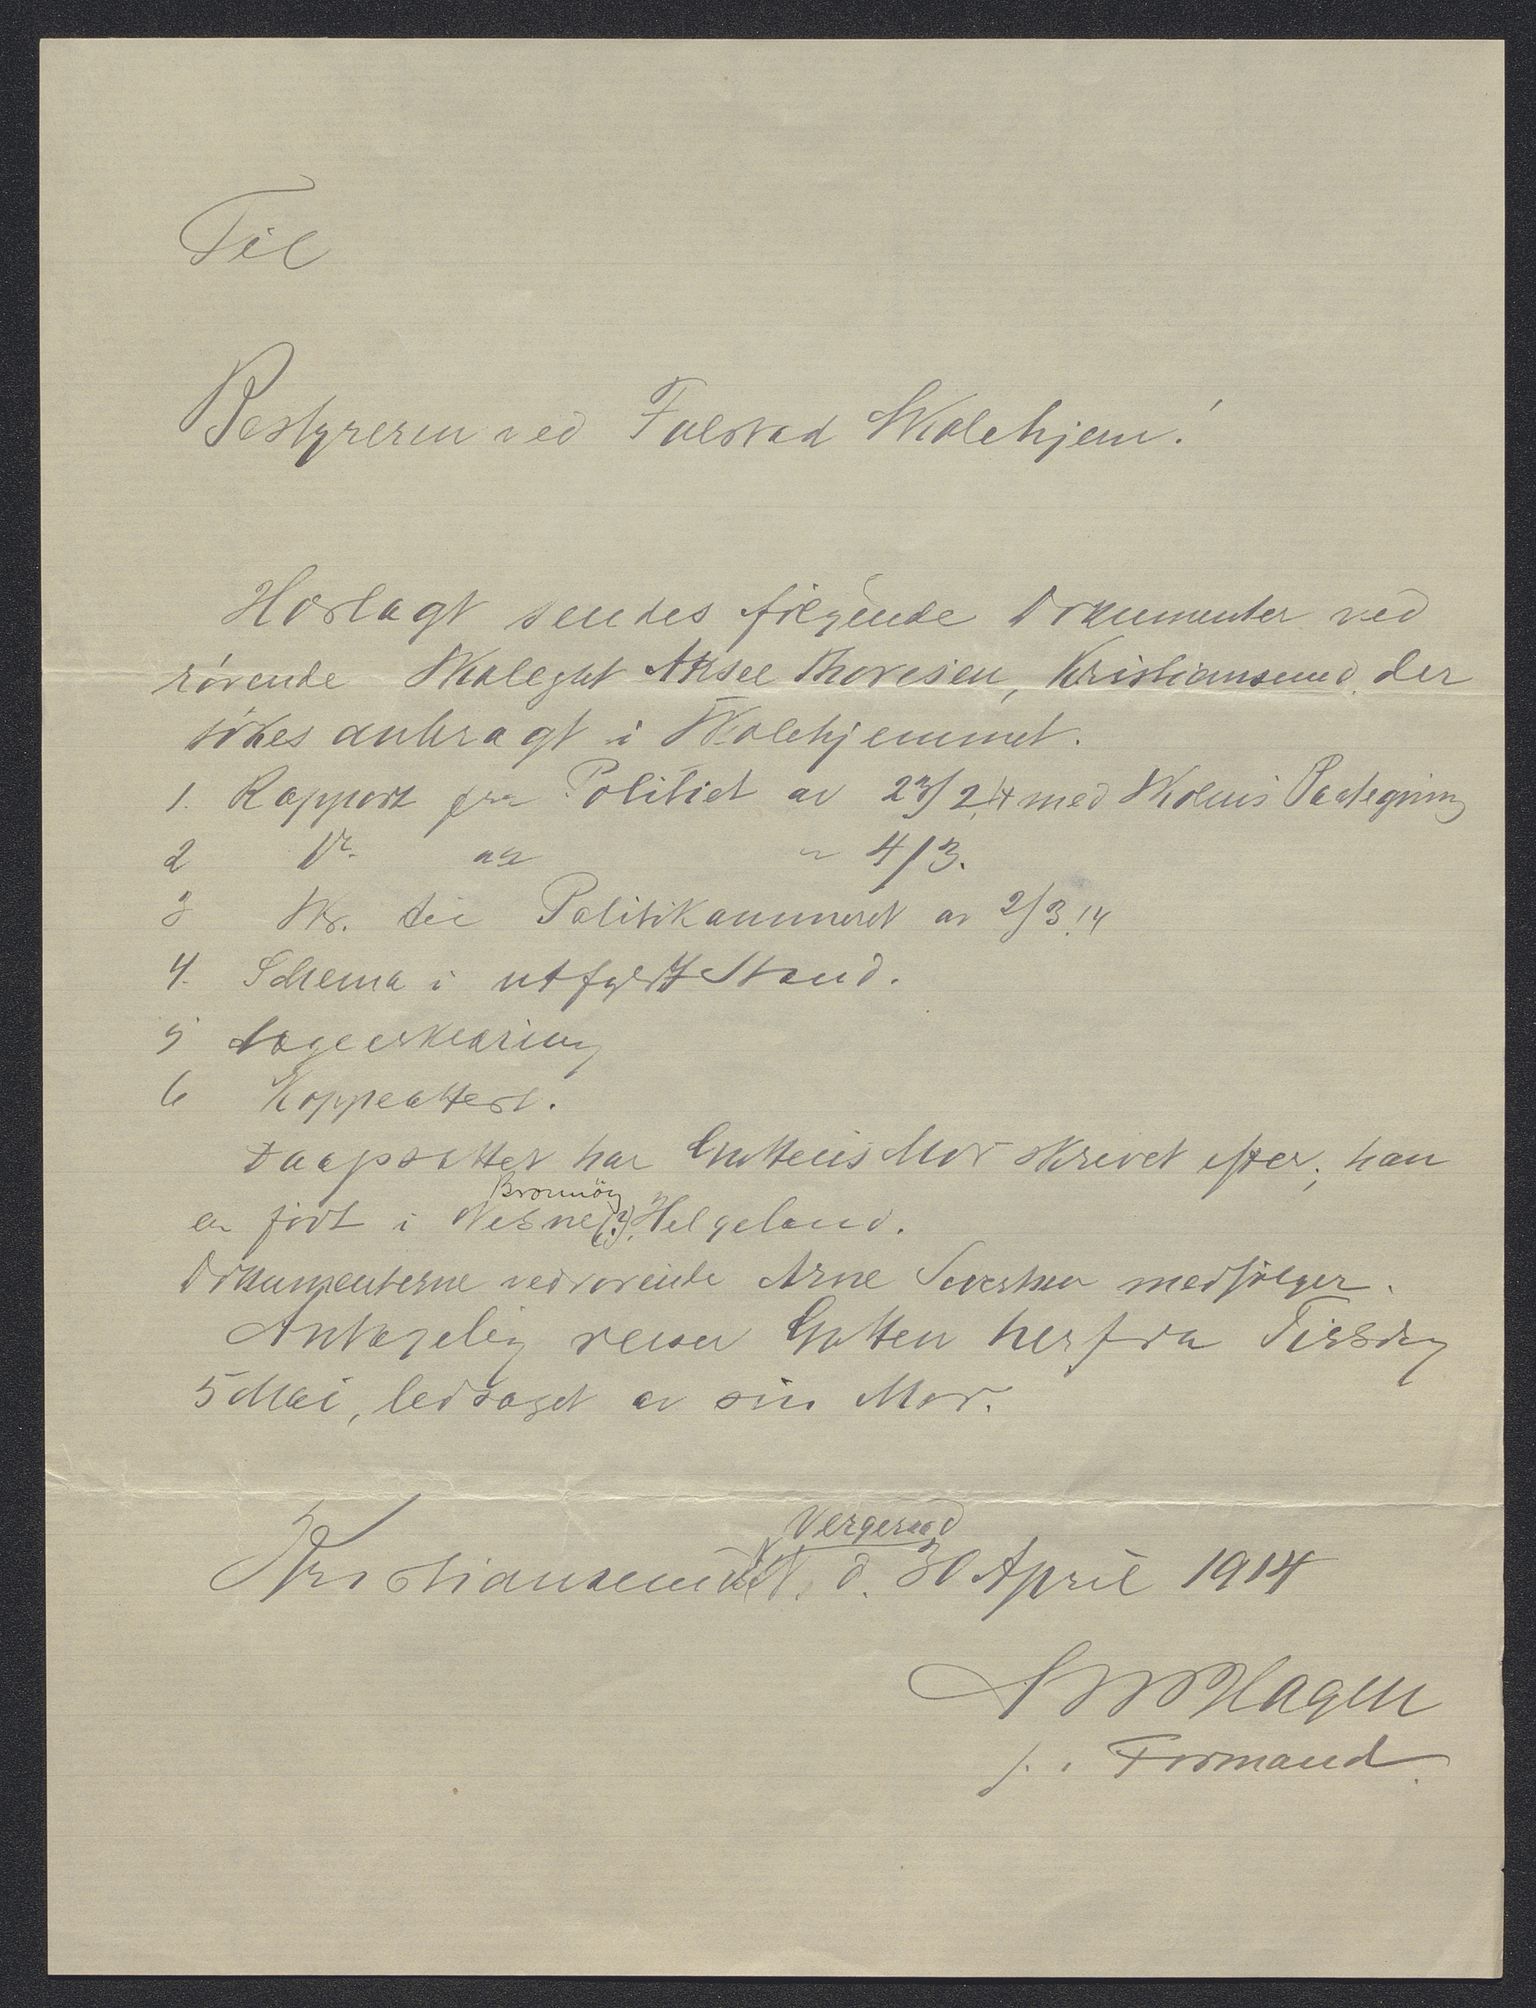 Til
Bestyreren ved Falstad Skolehjem!
Hoslagt sendes følgende Dokumenter ved
rørende Skolegut Aksel Thoresen, Kristiansund, der
søkes anbragt i Skolehjemmet.
1. Rapport fra Politiet av 23/2 14 med Skolens Paategning
2 Do. do " 4/3.
3 Skr. til Politikammeret av 2/3 14
4. Schema i utfyldt Stand.
5 Lægeerklæring
6 Koppeattest.
Daapsattest har Guttens Mor skrevet efter; han
Brønnøy
er født i Nesne(?), Helgeland.
Dokumenterne vedrørende Arne Sivertsen medfølger.
Antagelig reiser Gutten herfra Tirsdag
5 Mai, ledsaget av sin Mor.
Vergeraad
Kristiansund N. d. 30 April 1914
Hagen
f. t. Formand.